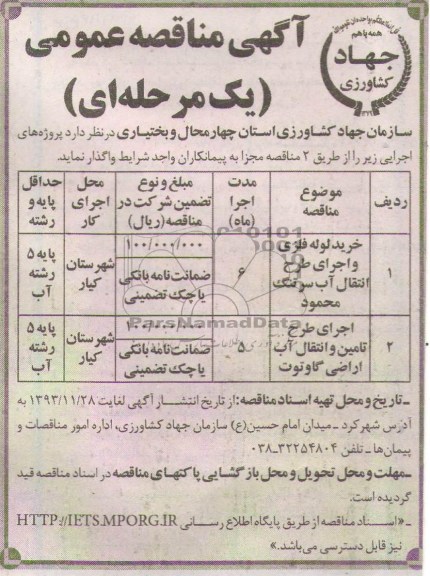 آگهی مناقصه عمومی
(یک مرحله‌ای)
همه با هم
جهاد
کشاورزی
سازمان جهاد کشاورزی استان چهارمحال و بختیاری در نظر دارد پروژه‌های
اجرایی زیر را از طریق ۲ مناقصه مجزا به پیمانکاران واجد شرایط واگذار نماید.
ردیف موضوع مناقصه مدت اجرا (ماه) مبلغ و نوع تضمین شرکت در مناقصه (ریال) محل اجرای کار حداقل پایه و رشته
۱ خرید لوله فلزی و اجرای طرح انتقال آب سرتنگ محمود ۶ ۱۰۰/۰۰۰/۰۰۰ ضمانت‌نامه بانکی یا چک تضمینی شهرستان کیار پایه ۵ رشته آب
۲ اجرای طرح تامین و انتقال آب اراضی گاوتوت ۵ ضمانت‌نامه بانکی یا چک تضمینی شهرستان کیار پایه ۵ رشته آب
ParsNamadData
ـ تاریخ و محل تهیه اسناد مناقصه: از تاریخ انتشار آگهی لغایت ۱۳۹۳/۱۱/۲۸ به
آدرس شهرکرد ـ میدان امام حسین(ع) سازمان جهاد کشاورزی، اداره امور مناقصات و
پیمان‌ها ـ تلفن ۳۲۲۵۴۸۰۴ـ۰۳۸
ـ مهلت و محل تحویل و محل بازگشایی پاکتهای مناقصه در اسناد مناقصه قید
گردیده است.
ـ «اسناد مناقصه از طریق پایگاه اطلاع رسانی HTTP://IETS.MPORG.IR
نیز قابل دسترسی می‌باشد.»